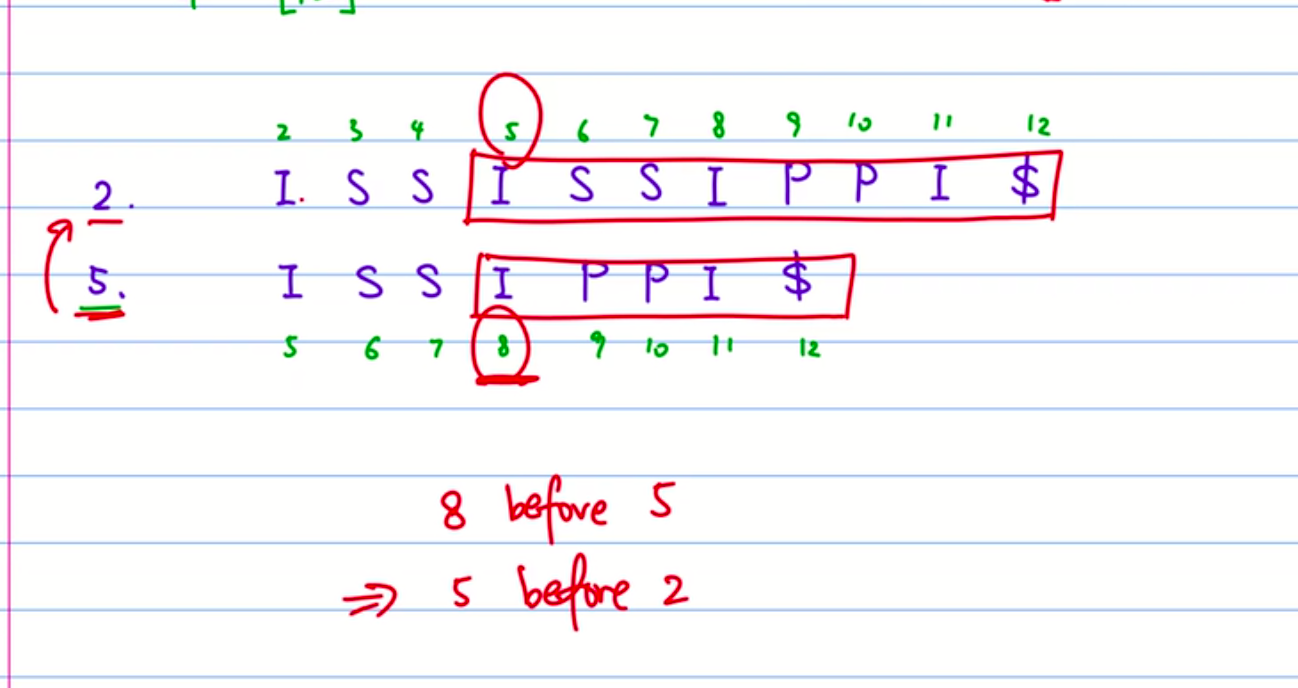 2 3 4 5 6 7 8 9 10 11 12
2. I. S S I S S I P P I $
5. I S S I P P I $
5 6 7 8 9 10 11 12
8 before 5
⇒ 5 before 2